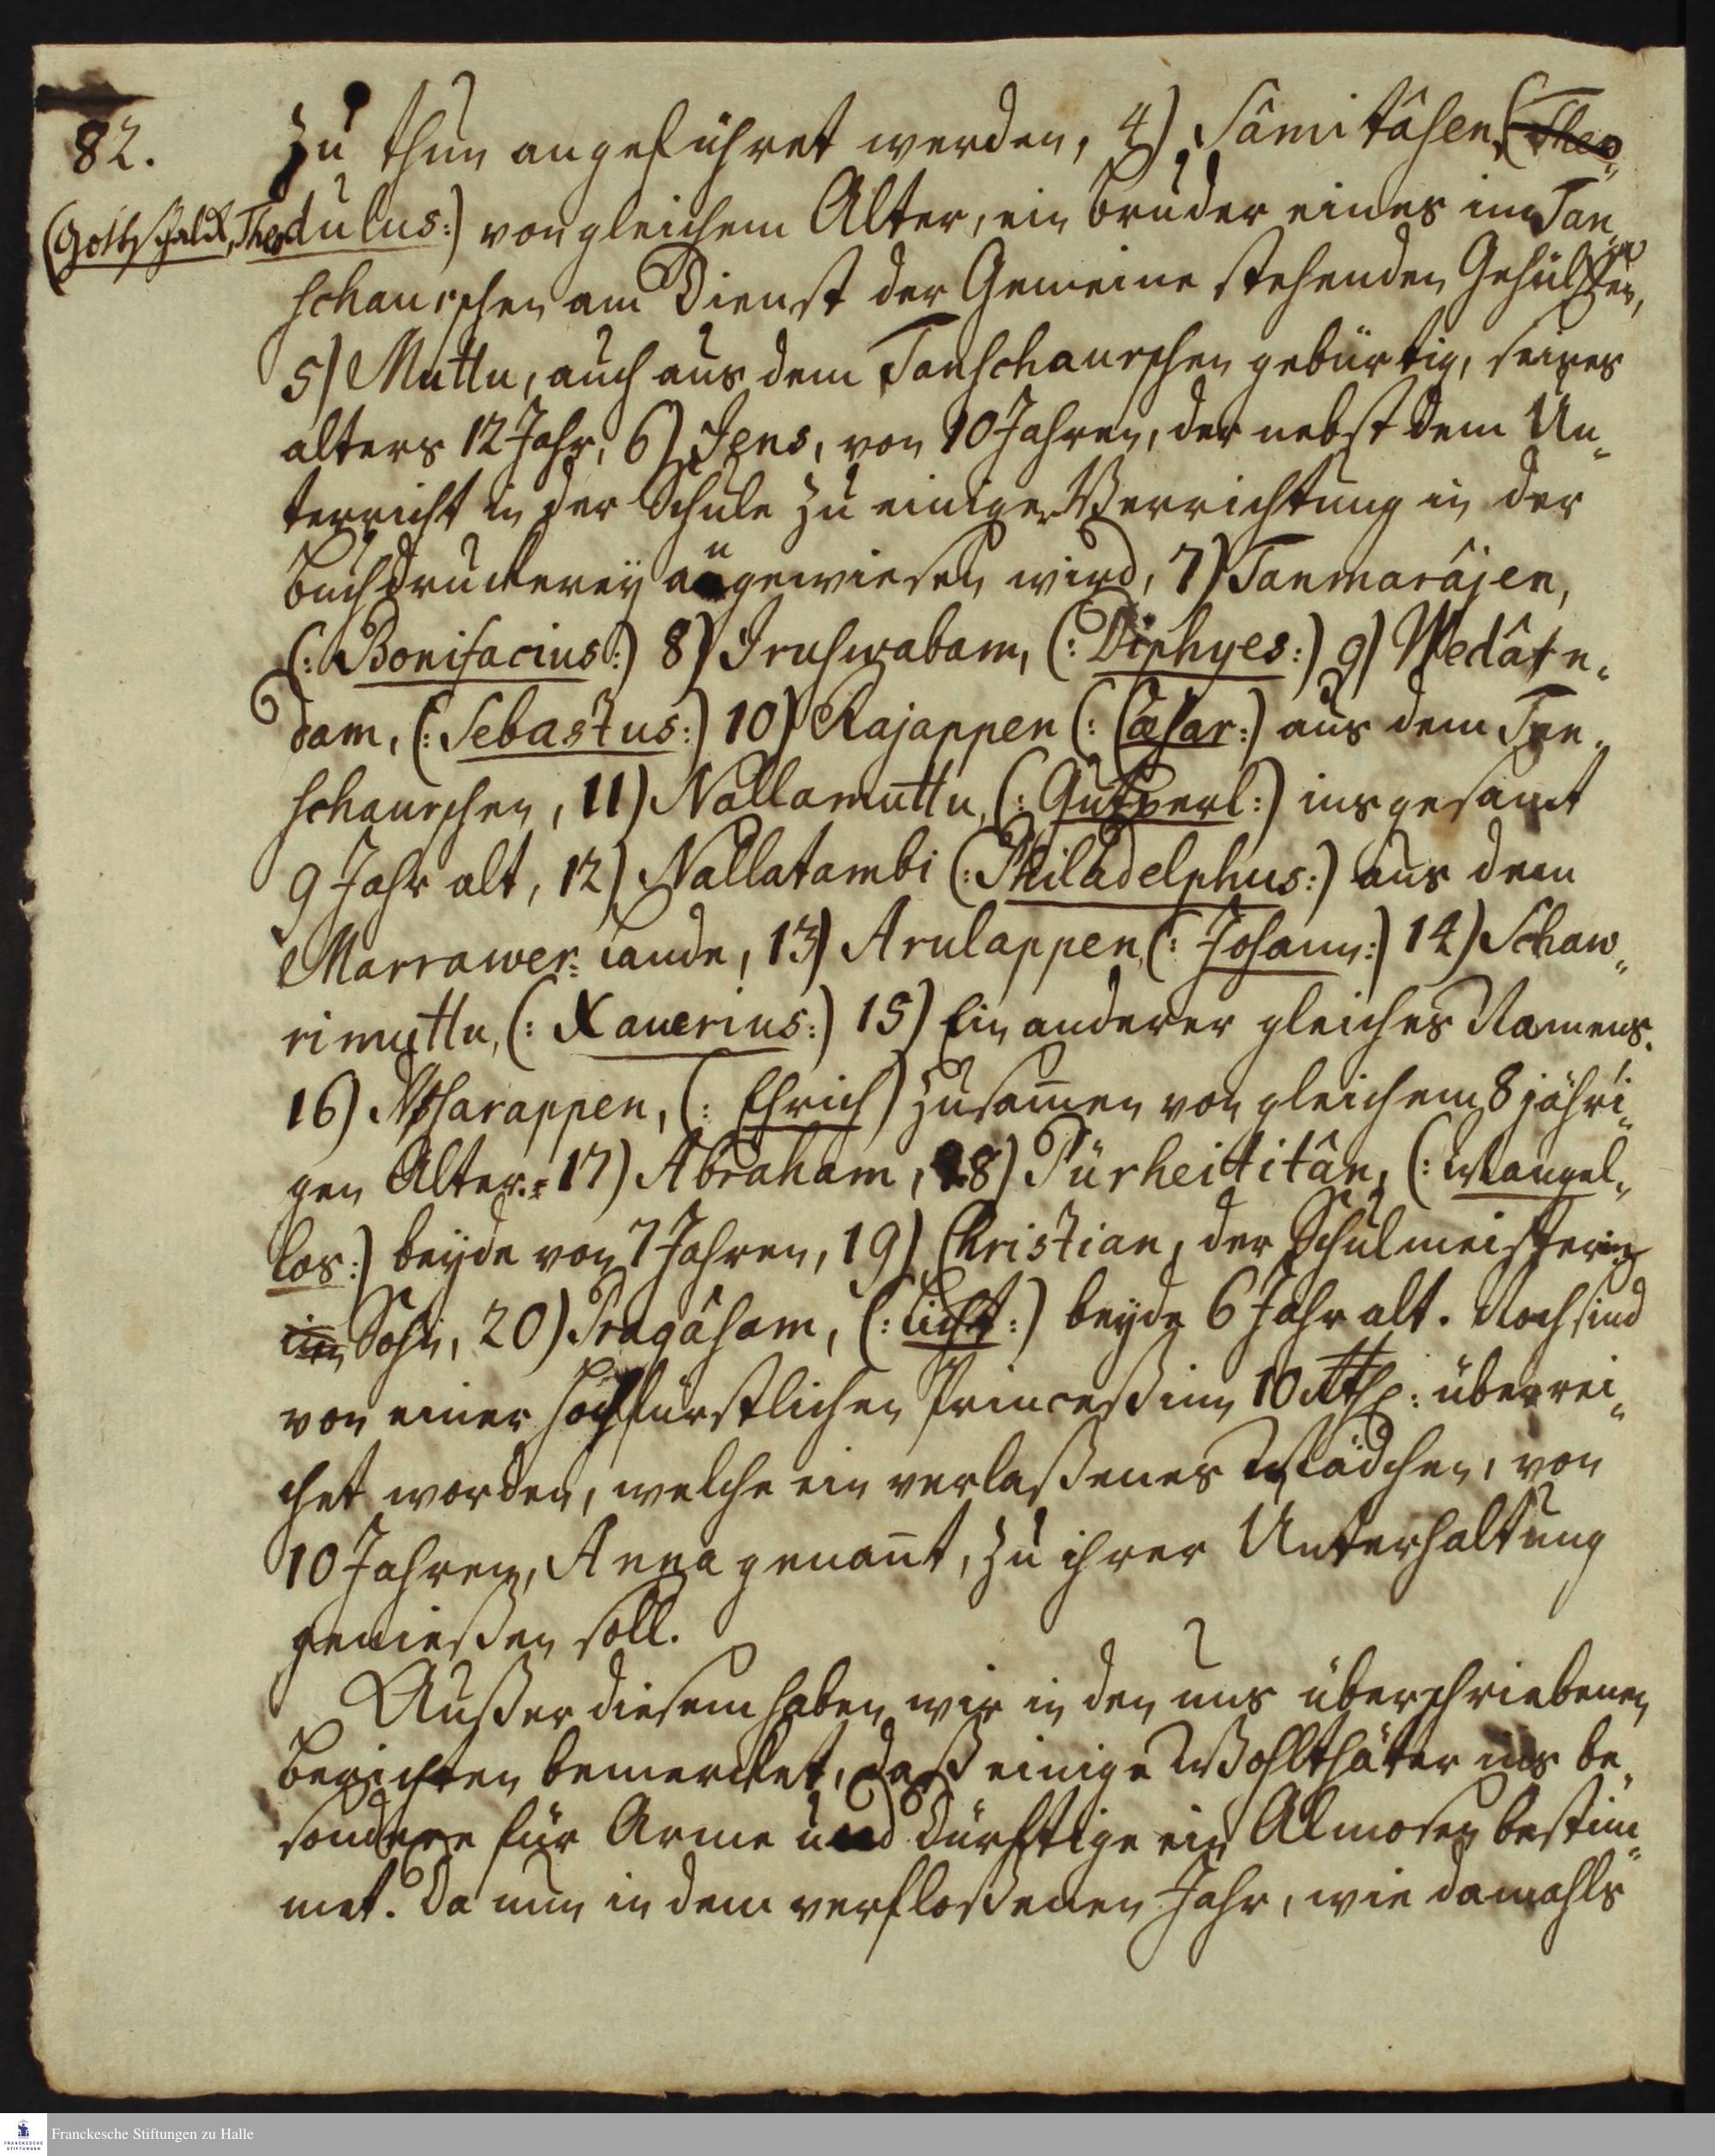 82.
zu thun angeführet werden, 4) Sâmitâsen, (Theo„
(Gottschalck, Theodulus:) von gleichem Alter, ein bruder eines im Tan„
schaurschen am Dienst der Gemeine stehenden Gehülffen,
5) Muttu, auch aus dem Tanschaurschen gebürtig, seines
alters 12 Jahr, 6) Jens, von 10 Jahren, der nebst dem Un„
terricht in der Schule zu einiger Verrichtung in der
buchdruckereÿ angewiesen wird, 7) Tanmarâjen,
(: Bonifacius:) 8) Iruhwabam, (: Diphyes:) 9) Wedâtn„
dam, (: Sebastus:) 10) Rajappen (: Cæsar:) aus dem Tan„
schaurschen, 11) Nallamuttu, (: Gutperl:) ins gesamt
9 Jahr alt, 12) Nallatambi (: Philadelphus:) aus dem
Marrawer-Lande, 13) Arulappen, (: Johann:) 14) Schaw„
rimuttu, (: Xauerius:) 15) Ein anderer gleiches Namens.
16) Asarappen, (: Ehrich) zusam̄en von gleichem 8 jähri„
gen Alter. 17) Abraham, 18) Pürheititân, (: Mangel„
los:) beÿde von 7 Jahren, 19) Christian, der Schulmeisterin
Sohn, 20) Pragâsam, (: Licht:) beÿde 6 Jahr alt. Noch sind
von einer Hochfürstlichen Princeßinn 10 Rthl: überrei„
chet worden, welche ein verlaßenes Mädchen, von
10 Jahren, Anna genan̄t, zu ihrer Unterhaltung
genießen soll.
Außer diesem haben wir in den uns überschriebenen
berichten bemercket, daß einige Wohlthäter ins be„
sondere für Arme und Dürftige ein Almosen bestim„
met. Da nun in dem verfloßenen Jahr, wie damahls
Franckesche Stiftungen zu Halle
FRANCKESCHE
STIFTUNGEN